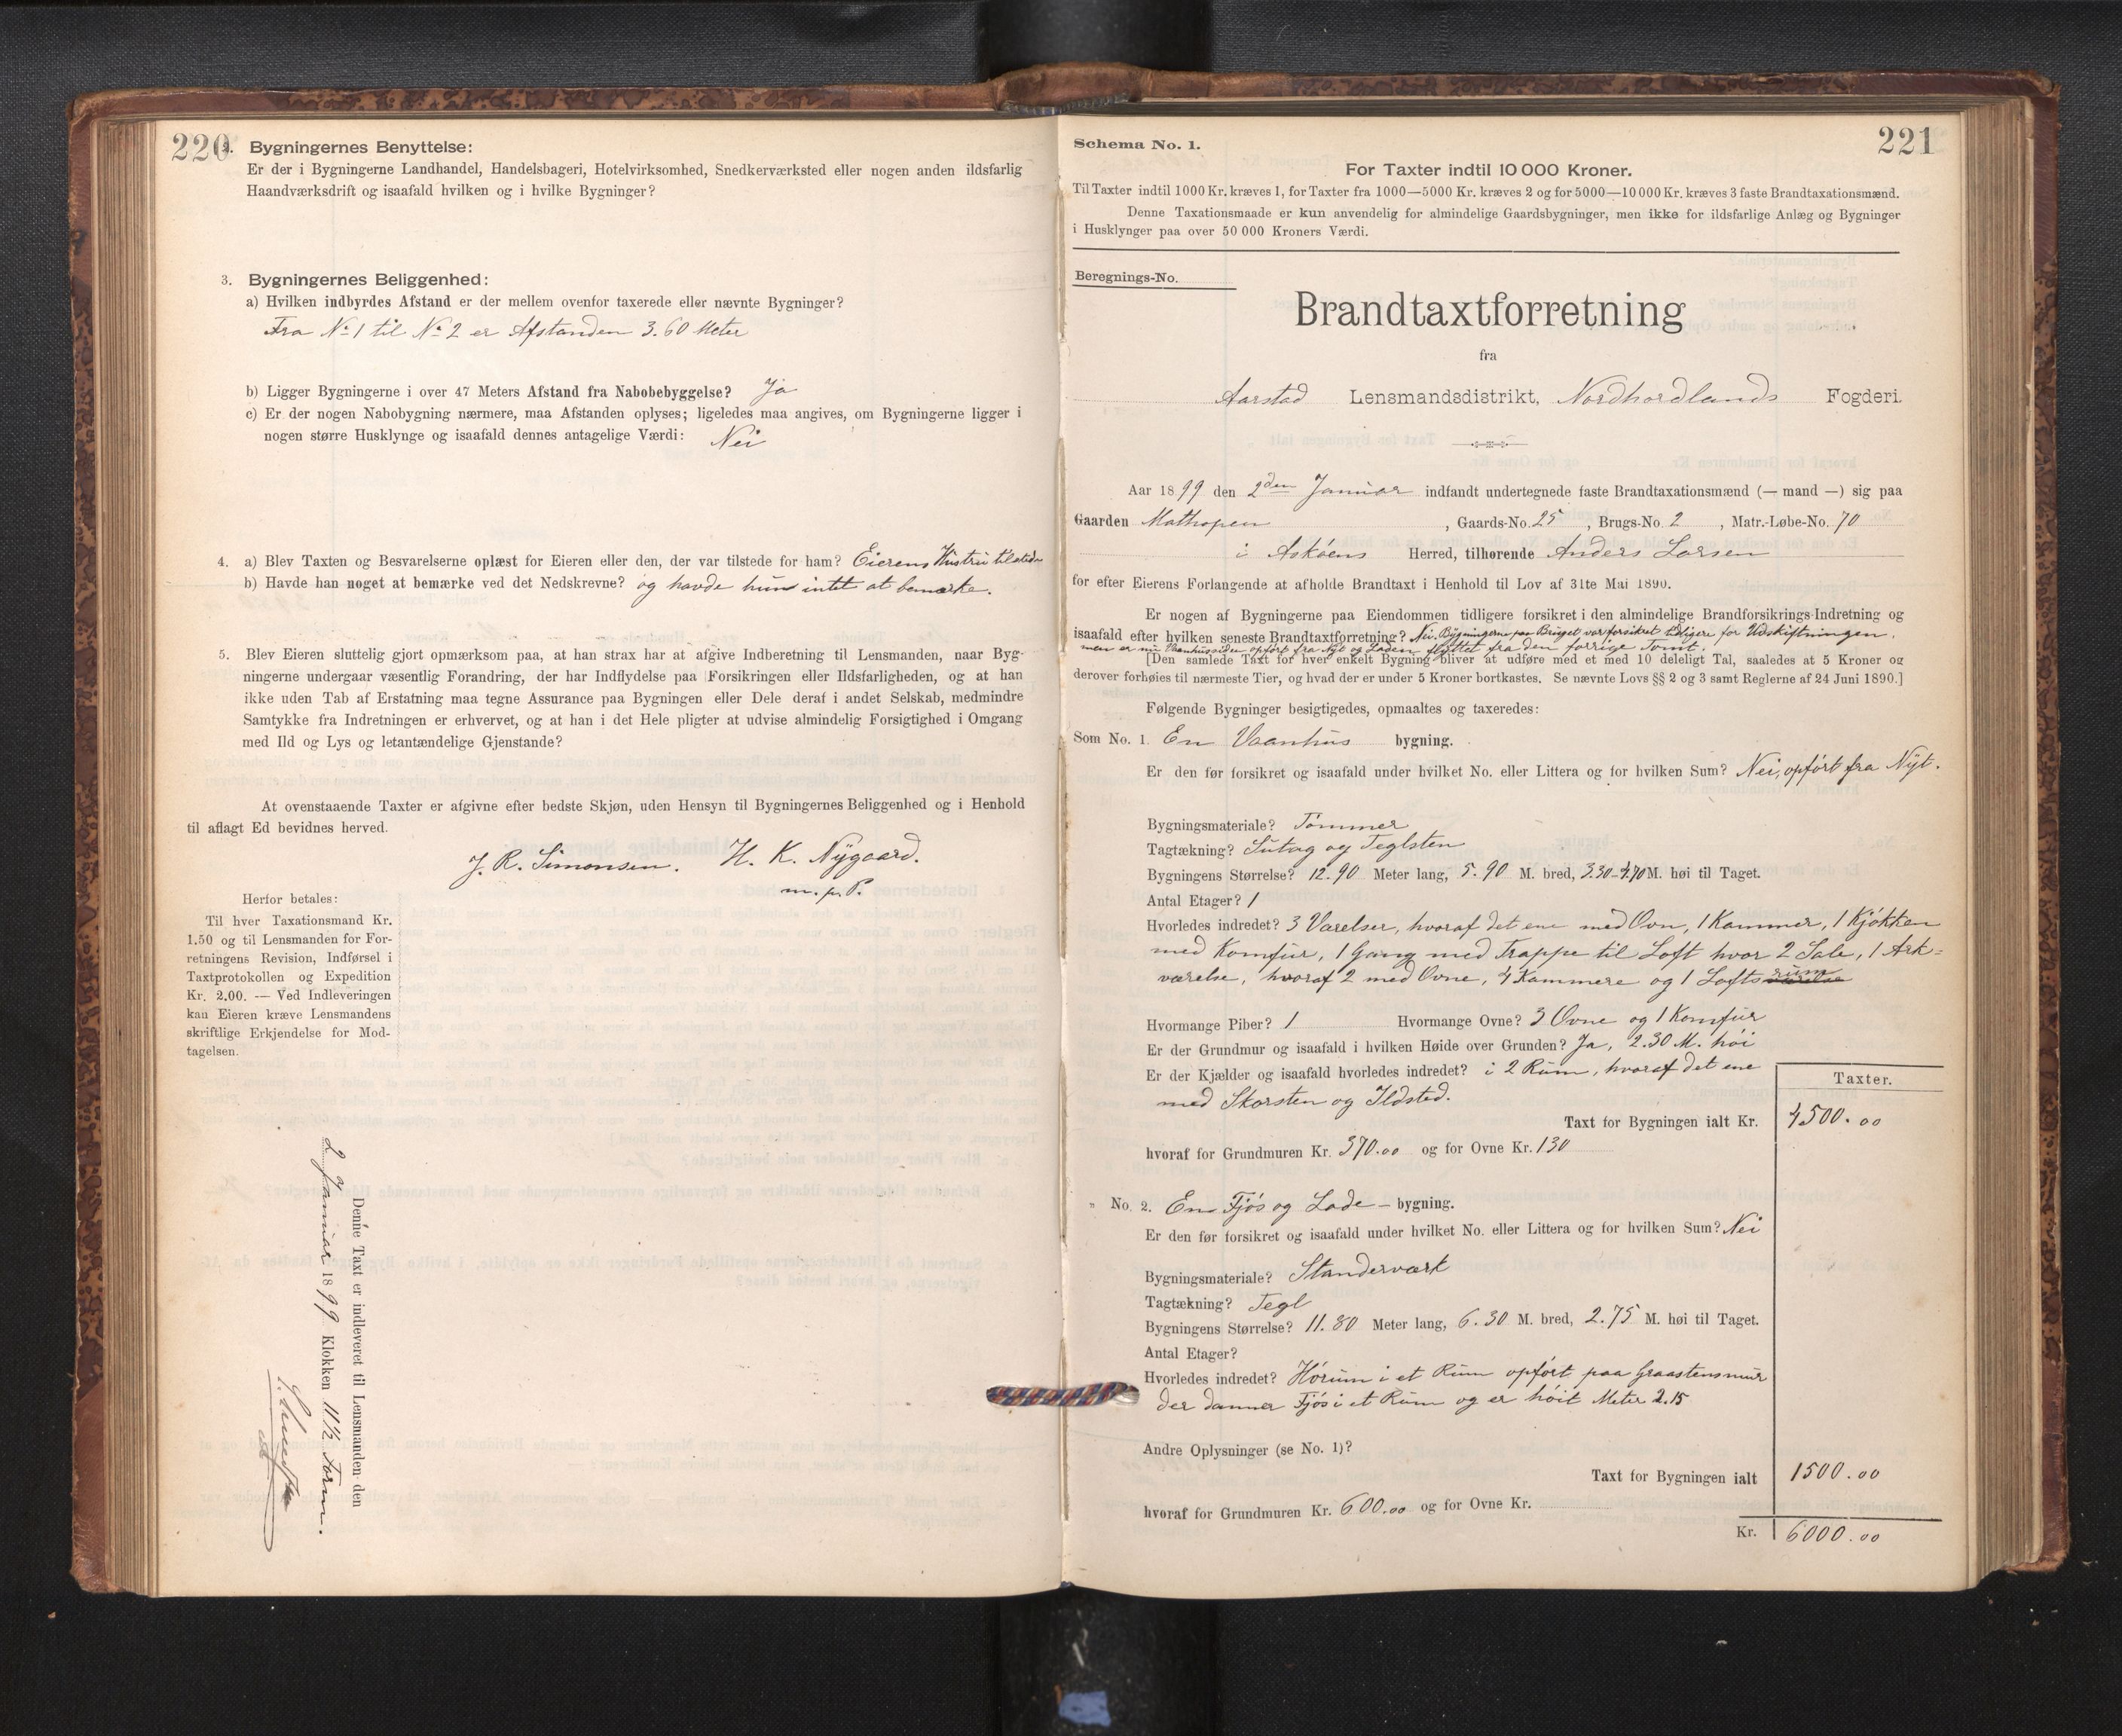 220
2. Bygningernes Benyttelse:
Er der i Bygningerne Landhandel, Handelsbageri, Hotelvirksomhed, Snedkerværksted eller nogen anden ildsfarlig
Haandværksdrift og isaafald hvilken og i hvilke Bygninger?
3. Bygningernes Beliggenhed:
a) Hvilken indbyrdes Afstand er der mellem ovenfor taxerede eller nævnte Bygninger?
Fra No 1 til No 2 er Afstanden 3.60 Meter
b) Ligger Bygningerne i over 47 Meters Afstand fra Nabobebyggelse? Ja
c) Er der nogen Nabobygning nærmere, maa Afstanden oplyses; ligeledes maa angives, om Bygningerne ligger i
nogen større Husklynge og isaafald dennes antagelige Værdi: Nei
4. a) Blev Taxten og Besvarelserne oplæst for Eieren eller den, der var tilstede for ham? Eierens Hustru tilstede
b) Havde han noget at bemærke ved det Nedskrevne? og havde hun intet at bemærke.
5. Blev Eieren sluttelig gjort opmærksom paa, at han strax har at afgive Indberetning til Lensmanden, naar Byg-
ningerne undergaar væsentlig Forandring, der har Indflydelse paa Forsikringen eller Ildsfarligheden, og at han
ikke uden Tab af Erstatning maa tegne Assurance paa Bygningen eller Dele deraf i andet Selskab, medmindre
Samtykke fra Indretningen er erhvervet, og at han i det Hele pligter at udvise almindelig Forsigtighed i Omgang
med Ild og Lys og letantændelige Gjenstande?
At ovenstaaende Taxter er afgivne efter bedste Skjøn, uden Hensyn til Bygningernes Beliggenhed og i Henhold
til aflagt Ed bevidnes herved.
J. R. Simonsen. H. K. Nÿgaard.
m. p. P.
Herfor betales:
Til hver Taxationsmand Kr.
1.50 og til Lensmanden for For-
retningens Revision, Indførsel i
Taxtprotokollen og Expedition
Kr. 2.00. — Ved Indleveringen
kan Eieren kræve Lensmandens
skriftlige Erkjendelse for Mod-
tagelsen.
Denne Taxt er indleveret til Lensmanden den
2 Januar 1899 Klokken 11½ Form.
221
Schema No. 1.
For Taxter indtil 10 000 Kroner.
Til Taxter indtil 1000 Kr. kræves 1, for Taxter fra 1000—5000 Kr. kræves 2 og for 5000—10 000 Kr. kræves 3 faste Brandtaxationsmænd.
Denne Taxationsmaade er kun anvendelig for almindelige Gaardsbygninger, men ikke for ildsfarlige Anlæg og Bygninger
i Husklynger paa over 50 000 Kroners Værdi.
Beregnings-No.
Brandtaxtforretning
fra
Aarstad Lensmandsdistrikt, Nordhordlands Fogderi.
Aar 1899 den 2den Januar indfandt undertegnede faste Brandtaxationsmænd (— mand —) sig paa
Gaarden Mathopen, Gaards-No. 25, Brugs-No. 2, Matr.-Løbe-No. 70
i Askøens Herred, tilhørende Anders Larsen
for efter Eierens Forlangende at afholde Brandtaxt i Henhold til Lov af 31te Mai 1890.
Er nogen af Bygningerne paa Eiendommen tidligere forsikret i den almindelige Brandforsikrings-Indretning og
isaafald efter hvilken seneste Brandtaxtforretning? Nei. Bÿgningerne paa Bruget var forsikret tidligere før Udskiftningen,
men er nu Vaanhussiden opført fra Nÿt og Laden flÿttet fra den forrige Tomt.
[Den samlede Taxt for hver enkelt Bygning bliver at udføre med et med 10 deleligt Tal, saaledes at 5 Kroner og
derover forhøies til nærmeste Tier, og hvad der er under 5 Kroner bortkastes. Se nævnte Lovs §§ 2 og 3 samt Reglerne af 24 Juni 1890.]
Følgende Bygninger besigtigedes, opmaaltes og taxeredes:
Som No. 1. En Vaanhus bygning.
Er den før forsikret og isaafald under hvilket No. eller Littera og for hvilken Sum? Nei, opført fra Nÿt.
Bygningsmateriale? Tømmer
Tagtækning? Sutag og Teglsten
Bygningens Størrelse? 12.90 Meter lang, 5.90 M. bred, 3.30-4.70 M. høi til Taget.
Antal Etager? 1
Hvorledes indredet? 3 Værelser, hvoraf det ene med Ovn, 1 Kammer, 1 Kjøkken
med Komfur, 1 Gang med Trappe til Loft hvor 2 Sale, 1 Ark-
værelse, hvoraf 2 med Ovne, 4 Kammere og 1 Loftsrum
Hvormange Piber? 1 Hvormange Ovne? 3 Ovne og 1 Komfur
Er der Grundmur og isaafald i hvilken Høide over Grunden? Ja, 2.30 M. høi
Er der Kjælder og isaafald hvorledes indredet? i 2 Rum, hvoraf det ene
med Skorsten og Ildsted.
Taxter.
Taxt for Bygningen ialt Kr. 4500.00
hvoraf for Grundmuren Kr. 370.00 og for Ovne Kr. 130
" No. 2. En Fjøs og Lade - bygning.
Er den før forsikret og isaafald under hvilket No. eller Littera og for hvilken Sum? Nei
Bygningsmateriale? Standerværk
Tagtækning? Tegl
Bygningens Størrelse? 11.80 Meter lang, 6.30 M. bred, 2.75 M. høi til Taget.
Antal Etager?
Hvorledes indredet? Hørum i et Rum opført paa Graastensmur
der danner Fjøs i et Rum og er høit Meter 2.15
Andre Oplysninger (se No. 1)?
Taxt for Bygningen ialt 1500.00
hvoraf for Grundmuren Kr. 600.00 og for Ovne Kr.
Kr. 6000.00